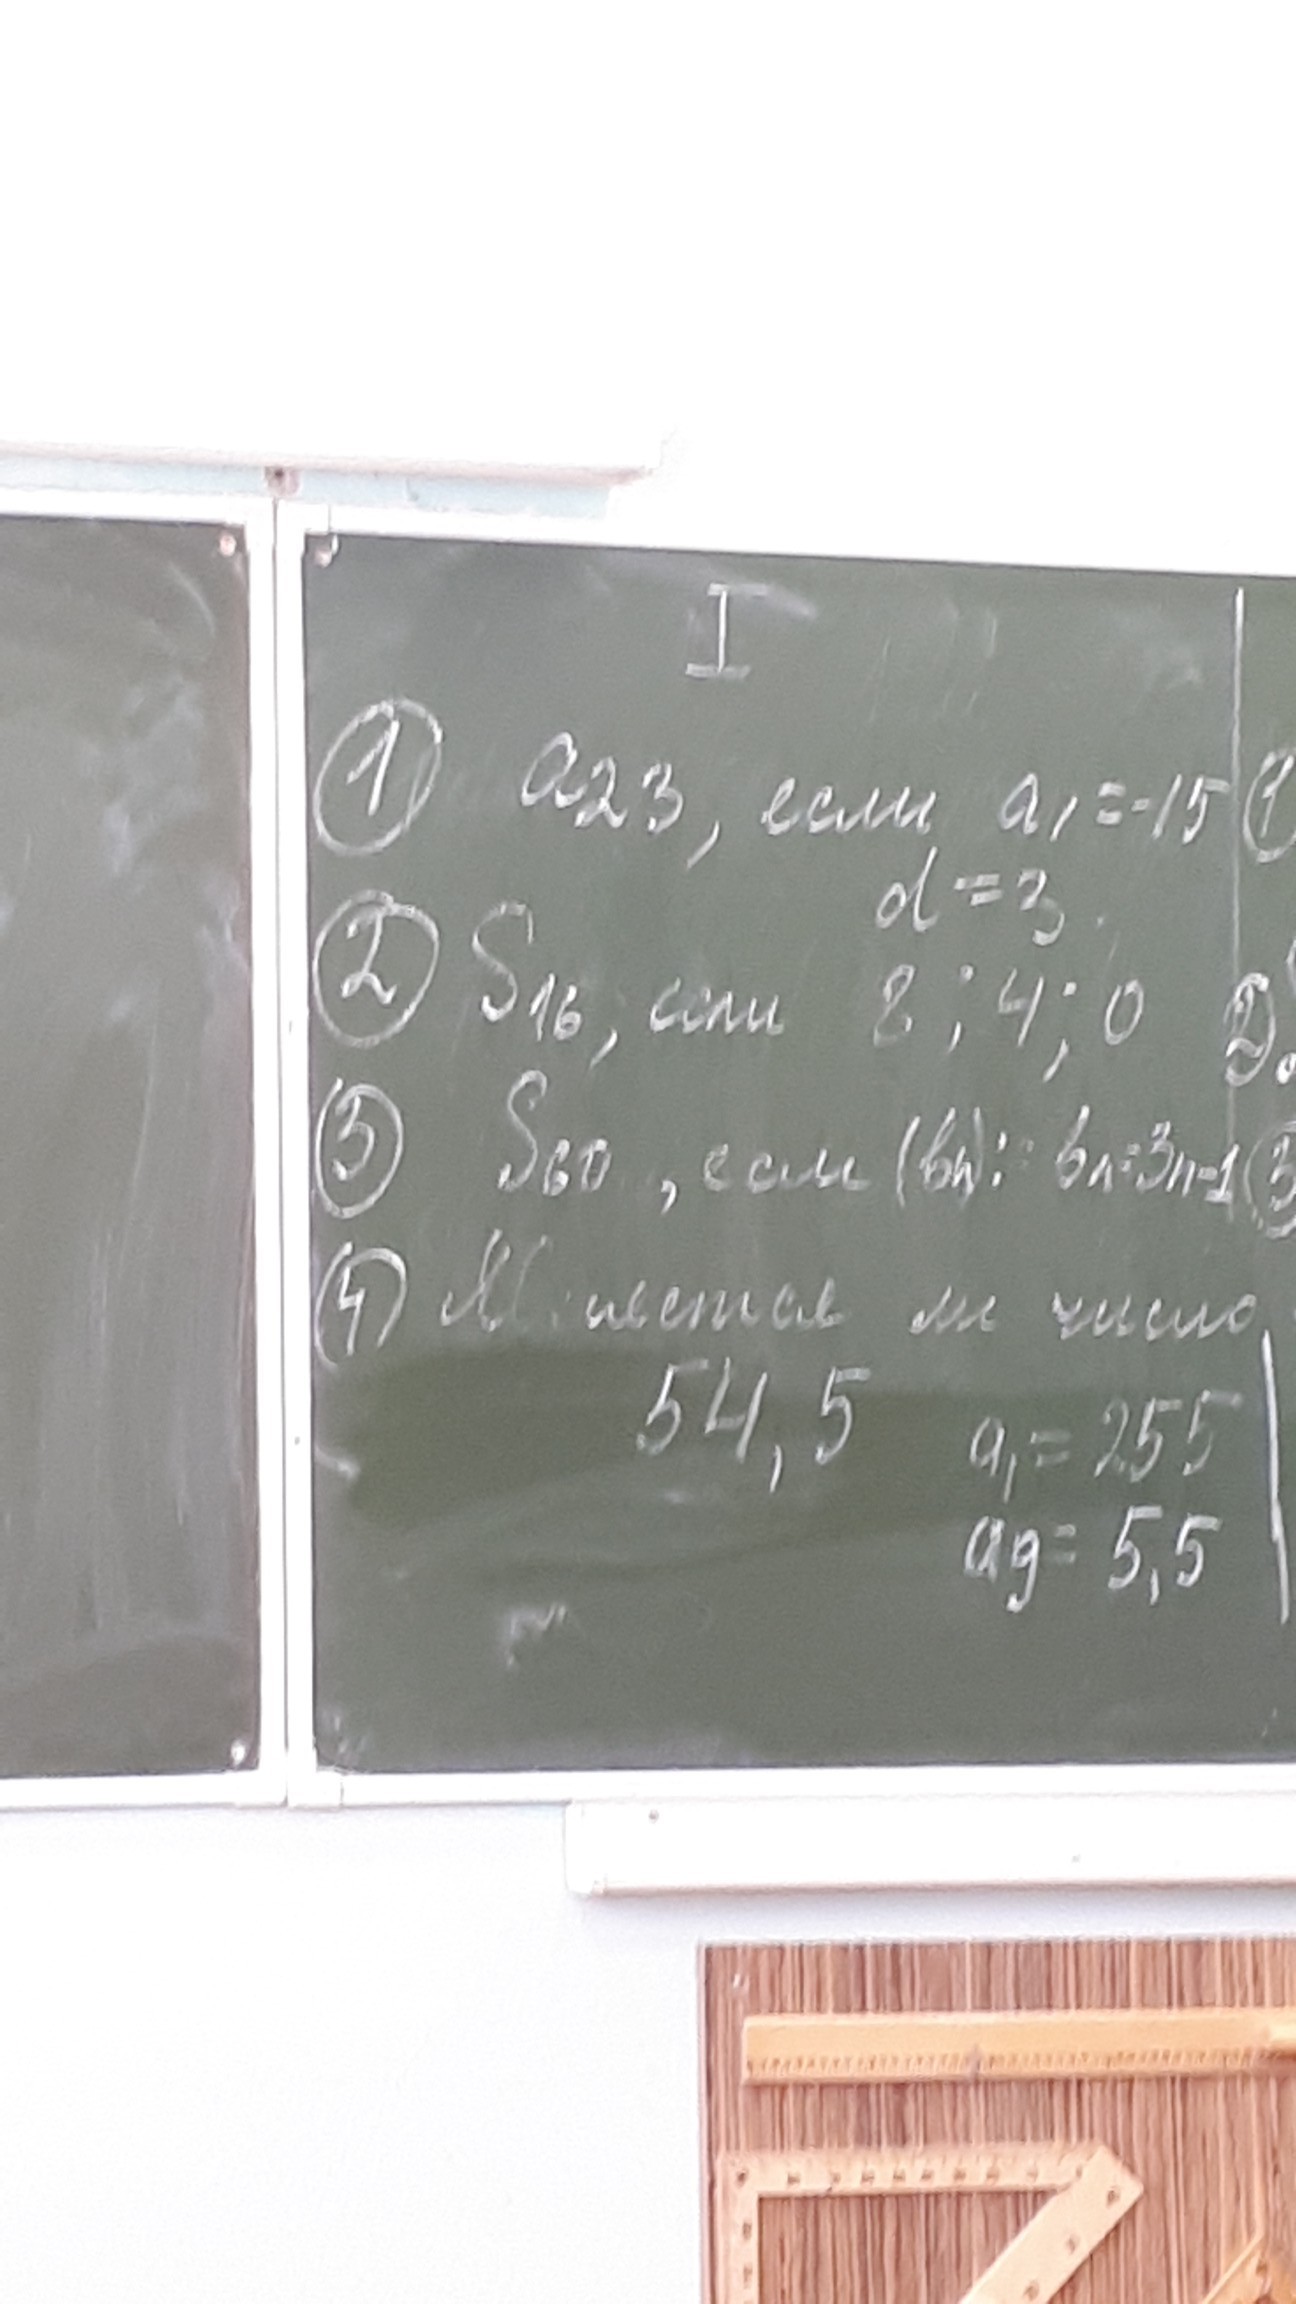 I
① a₂₃, если a₁ = -15
d = 3.
② S₁₆, если 8; 4; 0
③ S₆₀, если (bₙ): bₙ=3n-1
④ ли число
54,5 a₁ = 255
a₉ = 5,5
①
2)
③